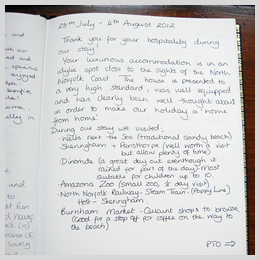 28th July - 4th August 2012
Thank you for your hospitality during
our stay!
Your luxurious accommodation is in an
idyllic spot close to the sights of the North
Norfolk Coast. The house is presented to
a very high standard, was well equipped
and has clearly been well thought about
in order to make our holiday a "home
from home".
During our stay we visited;
- Wells next the Sea (traditional sandy beach)
- Sheringham + Pensthorpe (well worth a visit
but allow plenty of time)
- Dinomite (a great day out eventhough it
rained for part of the day) - most
suitable for children up to 10.
- Amazona Zoo (small zoo, ½ day visit)
- North Norfolk Railway - Steam Train - (Poppy Line)
Holt - Sheringham
- Burnham Market - Quaint shops to browse,
(Good for a stop off for coffee on the way to
the beach)
PTO ⇒